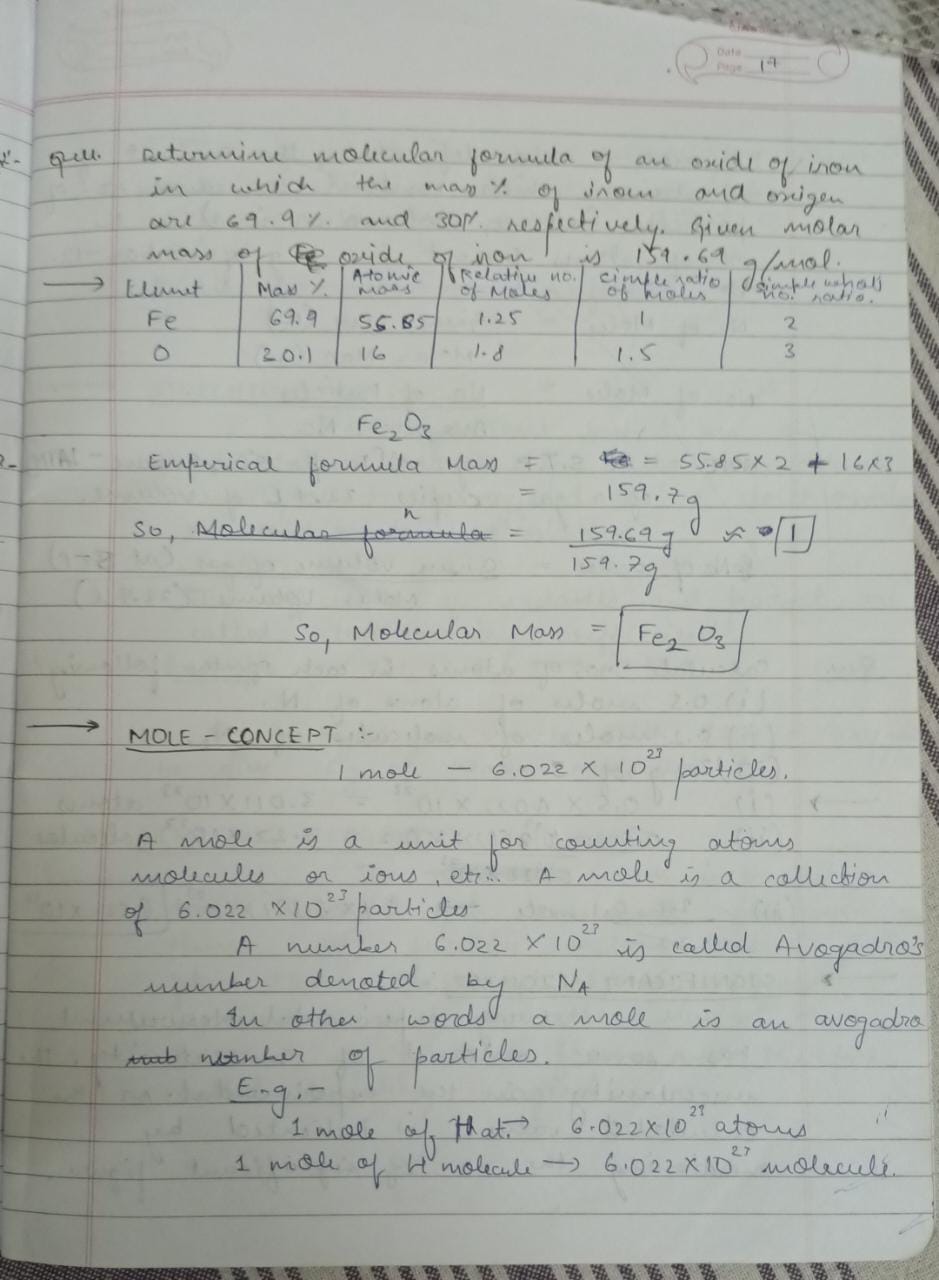 Date
Page 17
Ques. Determine molecular formula of an oxide of iron
in which the mass % of iroun and oxigen
are 69.9%. and 30%. respectively. Given molar
mass of oxide of iron is 159.69 g/mol.
→ Elemet | Mass %. | Atomic Mass | Relative no. of Moles | Simple ratio of Moles | Simple whole no. ratio.
Fe | 69.9 | 55.85 | 1.25 | 1 | 2
O | 20.1 | 16 | 1.8 | 1.5 | 3
Fe₂O₃
Emperical formula Mass = = 55.85 × 2 + 16×3
= 159.7g
So, Molecular formula n = 159.69g / 159.7g ≈ 1
So, Molecular Mass = Fe₂ O₃
→ MOLE - CONCEPT :-
1 mole — 6.022 × 10²³ particles.
A mole is a unit for counting atoms
molecules or ions, etc... A mole is a collection
of 6.022 ×10²³ particles
A number 6.022 × 10²³ is called Avogadro's
number denoted by NA
In other words a mole is an avogadro
number of particles.
E.g.:-
1 mole of that → 6.022×10²³ atoms
1 mole of H molecule → 6.022×10²³ molecule.